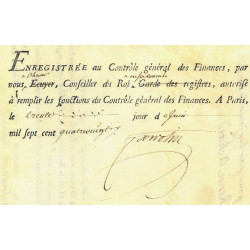 ENREGISTRÉE au Contrôle général des Finances, par
nous, Ecuyer, Conseiller du Roi, Garde des registres, autorisé
à remplir les fonctions du Contrôle général des Finances. A Paris,
le trente jour d
mil sept cent quatrevingt